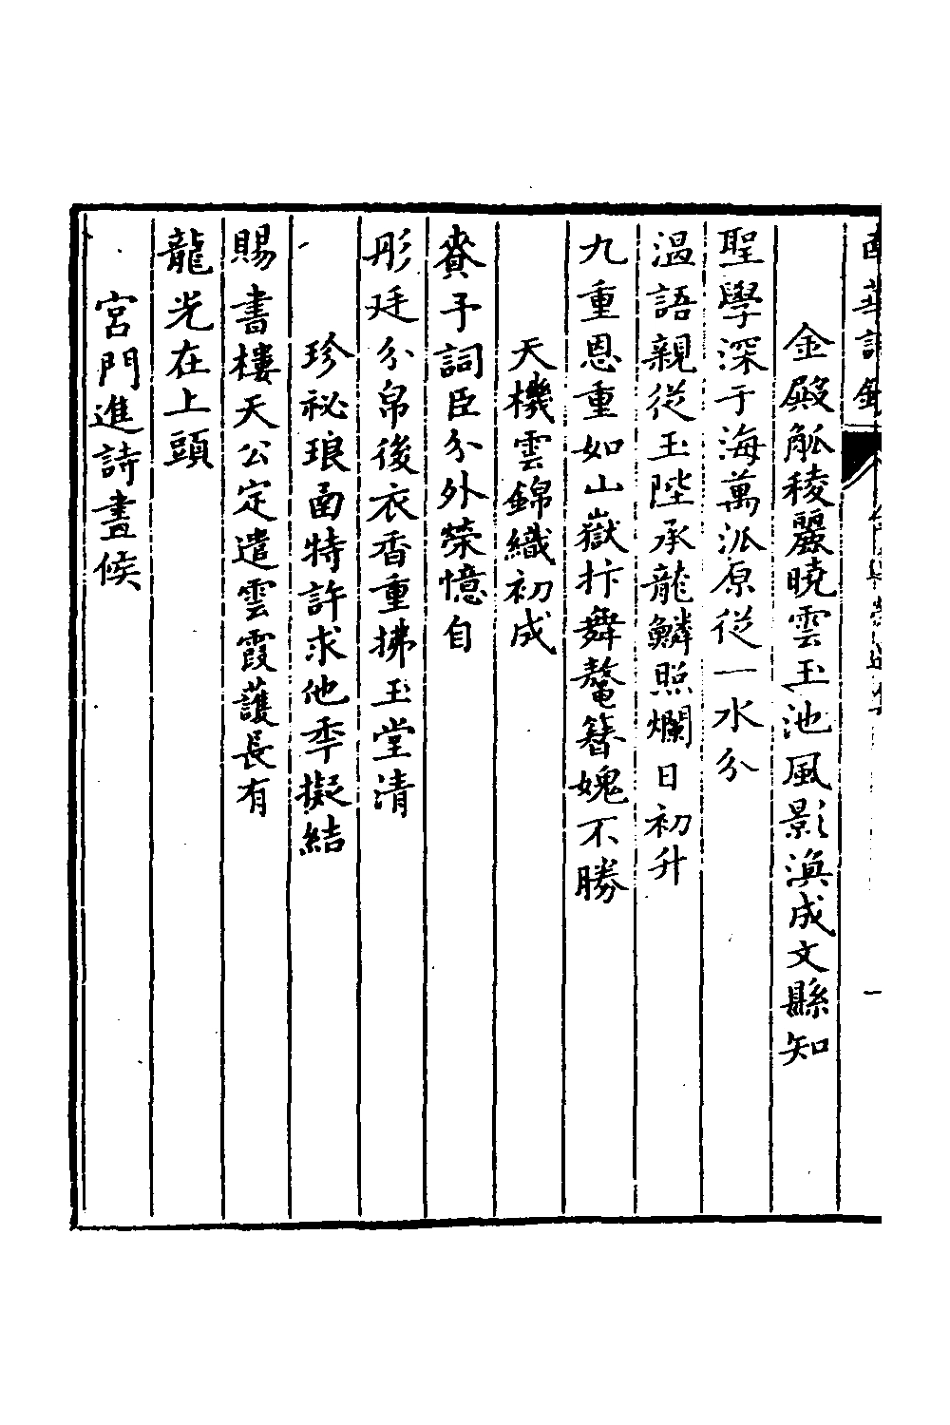 金殿觚稜麗曉雲玉池風影渙成文縣知
聖學深于海萬派原從一水分
溫語親從玉陛承龍鱗照爛日初升
九重恩重如山嶽抃舞鰲簪媿不勝
天機雲錦織初成
賚予詞臣分外榮憶自
彤廷分帛後衣香重拂玉堂清
珍祕琅函特許求他年擬結
賜書樓天公定遣雲霞護長有
龍光在上頭
宮門進詩晝候